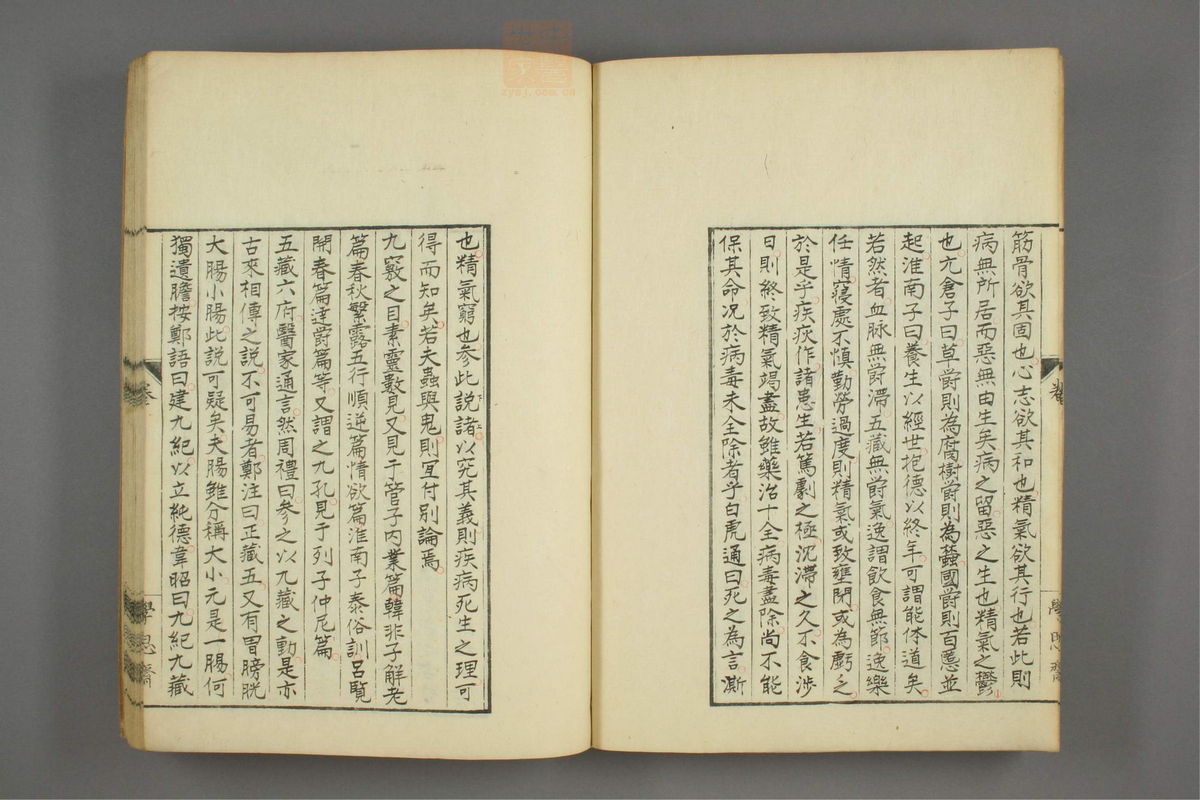 筋骨欲其固也心志欲其和也精氣欲其行也若此則
病無所居而惡無由生矣病之留惡之生也精氣之鬱
也亢倉子曰草爵則為腐樹爵則為蠧國爵則百慝並
起淮南子曰養生以經世抱德以終年可謂能体道矣
若然者血脉無爵滯五藏無爵氣逸謂飲食無節逸樂
任情寢處不慎勤勞過度則精氣或致壅閉或為虧之
於是乎疾疢作諸患生若篤劇之極沈滯之久不食涉
日則終致精氣竭盡故雖藥治十全病毒盡除尚不能
保其命况於病毒未全除者乎白虎通曰死之為言澌
也精氣窮也參此說諸以究其義則疾病死生之理可
得而知矣若夫蟲與鬼則宜付別論焉
九竅之目素靈數見又見于管子內業篇韓非子解老
篇春秋繁露五行順逆篇情欲篇淮南子泰俗訓呂覽
開春篇達爵篇等又謂之九孔見于列子仲尼篇
五藏六府醫家通言然周禮曰參之以九藏之動是亦
古來相傳之說不可易者鄭注曰正藏五又有胃膀胱
大腸小腸此說可疑矣夫腸雖分稱大小元是一腸何
獨遺膽按鄭語曰建九紀以立純德韋昭曰九紀九藏
學思齋
zysj.com.cn